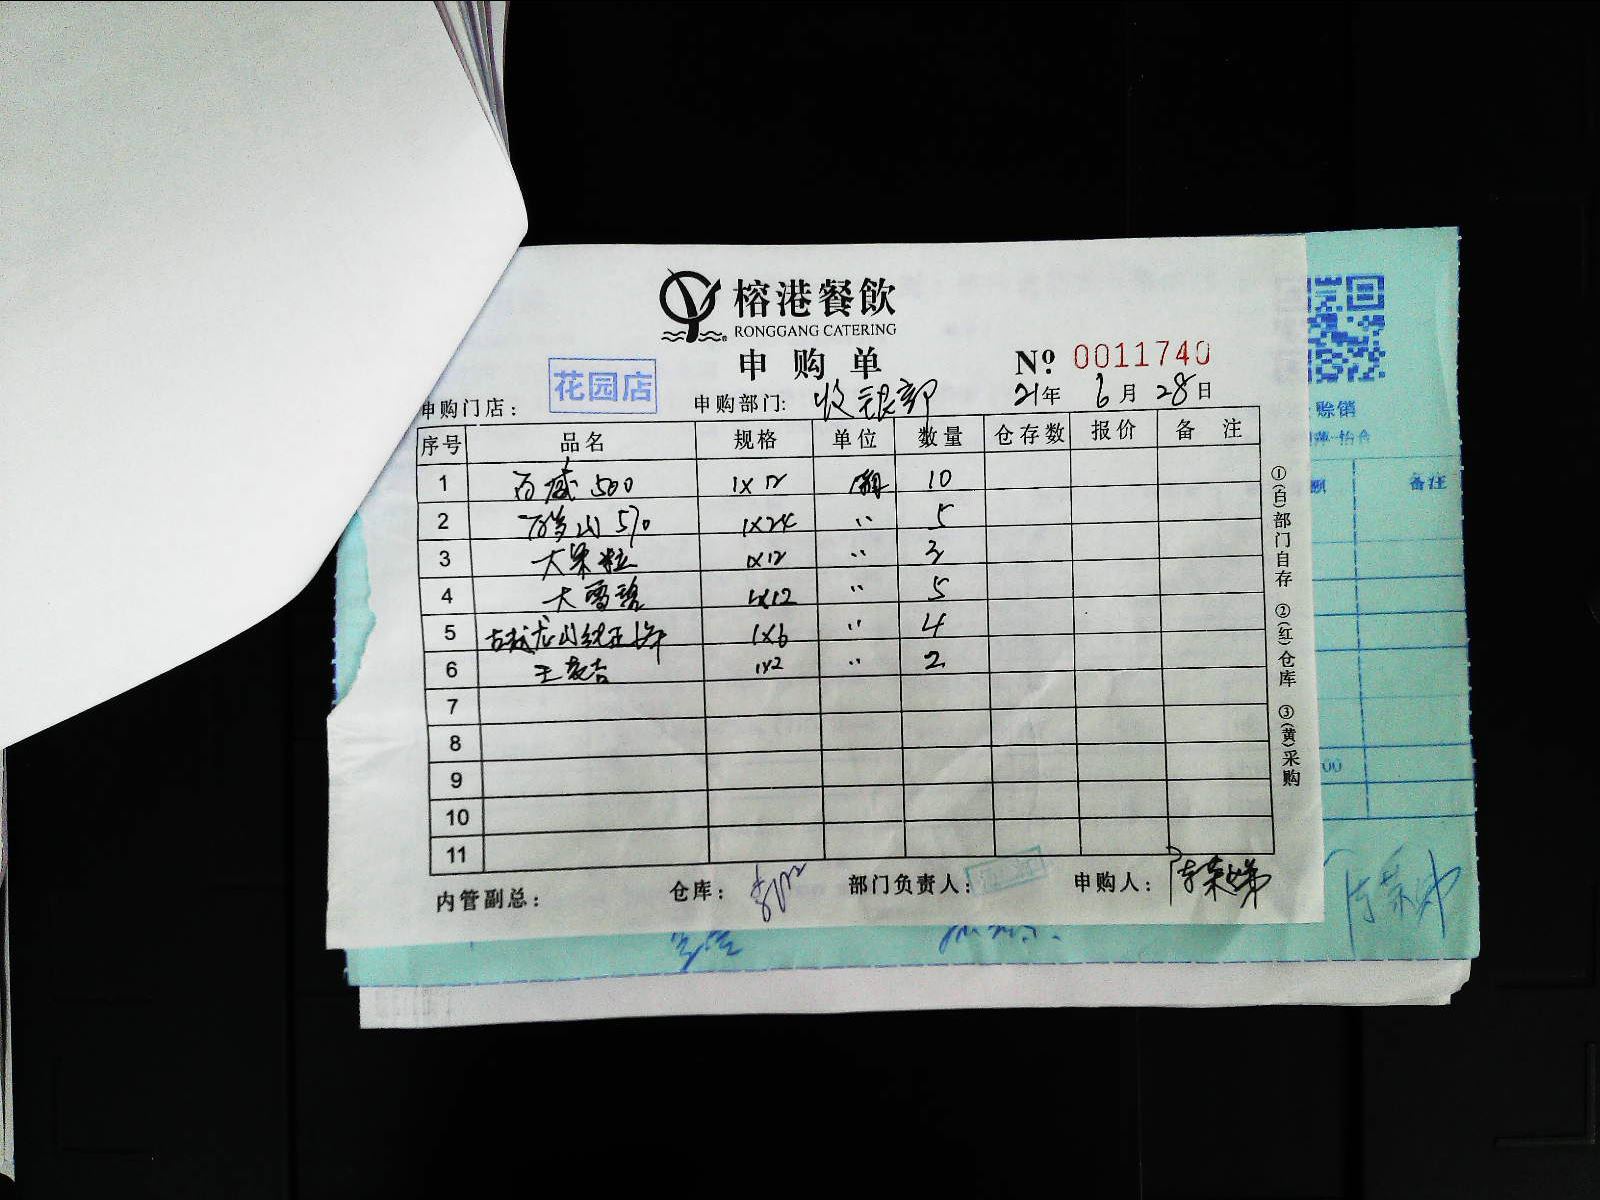 榕港餐飲
RONGGANG CATERING
申购单 № 0011740
申购门店： 花园店 申购部门: 收银部 21年 6月 28日
序号 品名 规格 单位 数量 仓存数 报价 备注
1 百威 500 1×12 箱 10
2 百岁山 570 1×24 〃 5
3 大果粒 1×12 〃 3
4 大雪碧 1×12 〃 5
5 古越龙山 1×6 〃 4
6 王老吉 1×2 〃 2
7
8
9
10
11
内管副总： 仓库： 部门负责人： 申购人：
①(白)部门自存 ②(红)仓库 ③(黄)采购
赊销
备注
00